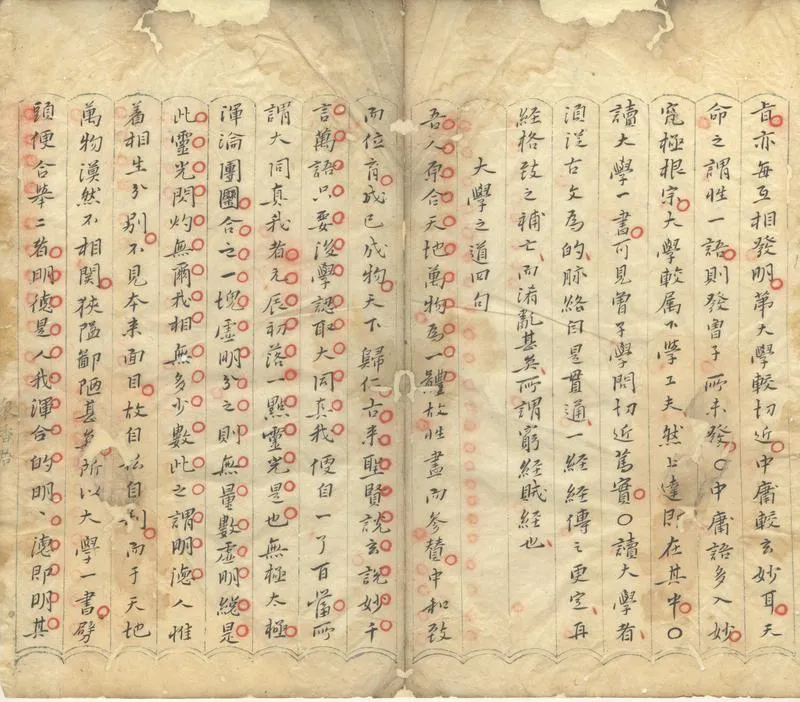 旨亦每互相發明第大學較切近中庸較玄妙耳天
命之謂性一語則發曾子所未發〇中庸語多入妙
究極根宗大學較属下學工夫然上達即在其中〇
讀大學一書可見曾子學問切近篤實〇讀大學者
須從古文為的脉絡自是貫通一經經傳之更定再
經格致之補亡而淆亂甚矣所謂窮經賊經也
大學之道四句
吾人原合天地萬物爲一體故性盡而參贊中和致
而位育成已成物天下歸仁古来聖賢説玄説妙千
言萬語只要後學認取大同真我便自一了百當所
謂大同真我者元辰初落一點靈光是也無極太極
渾淪團團合之一塊虛明分之則無量數虛明總是
此靈光閃灼無爾我相無多少數此之謂明德人惟
着相生分别不見本来面目故自私自利而于天地
萬物漠然不相関狹隘鄙陋甚矣所以大學一書劈
頭便合舉二者明德是人我渾合的明、德即明其